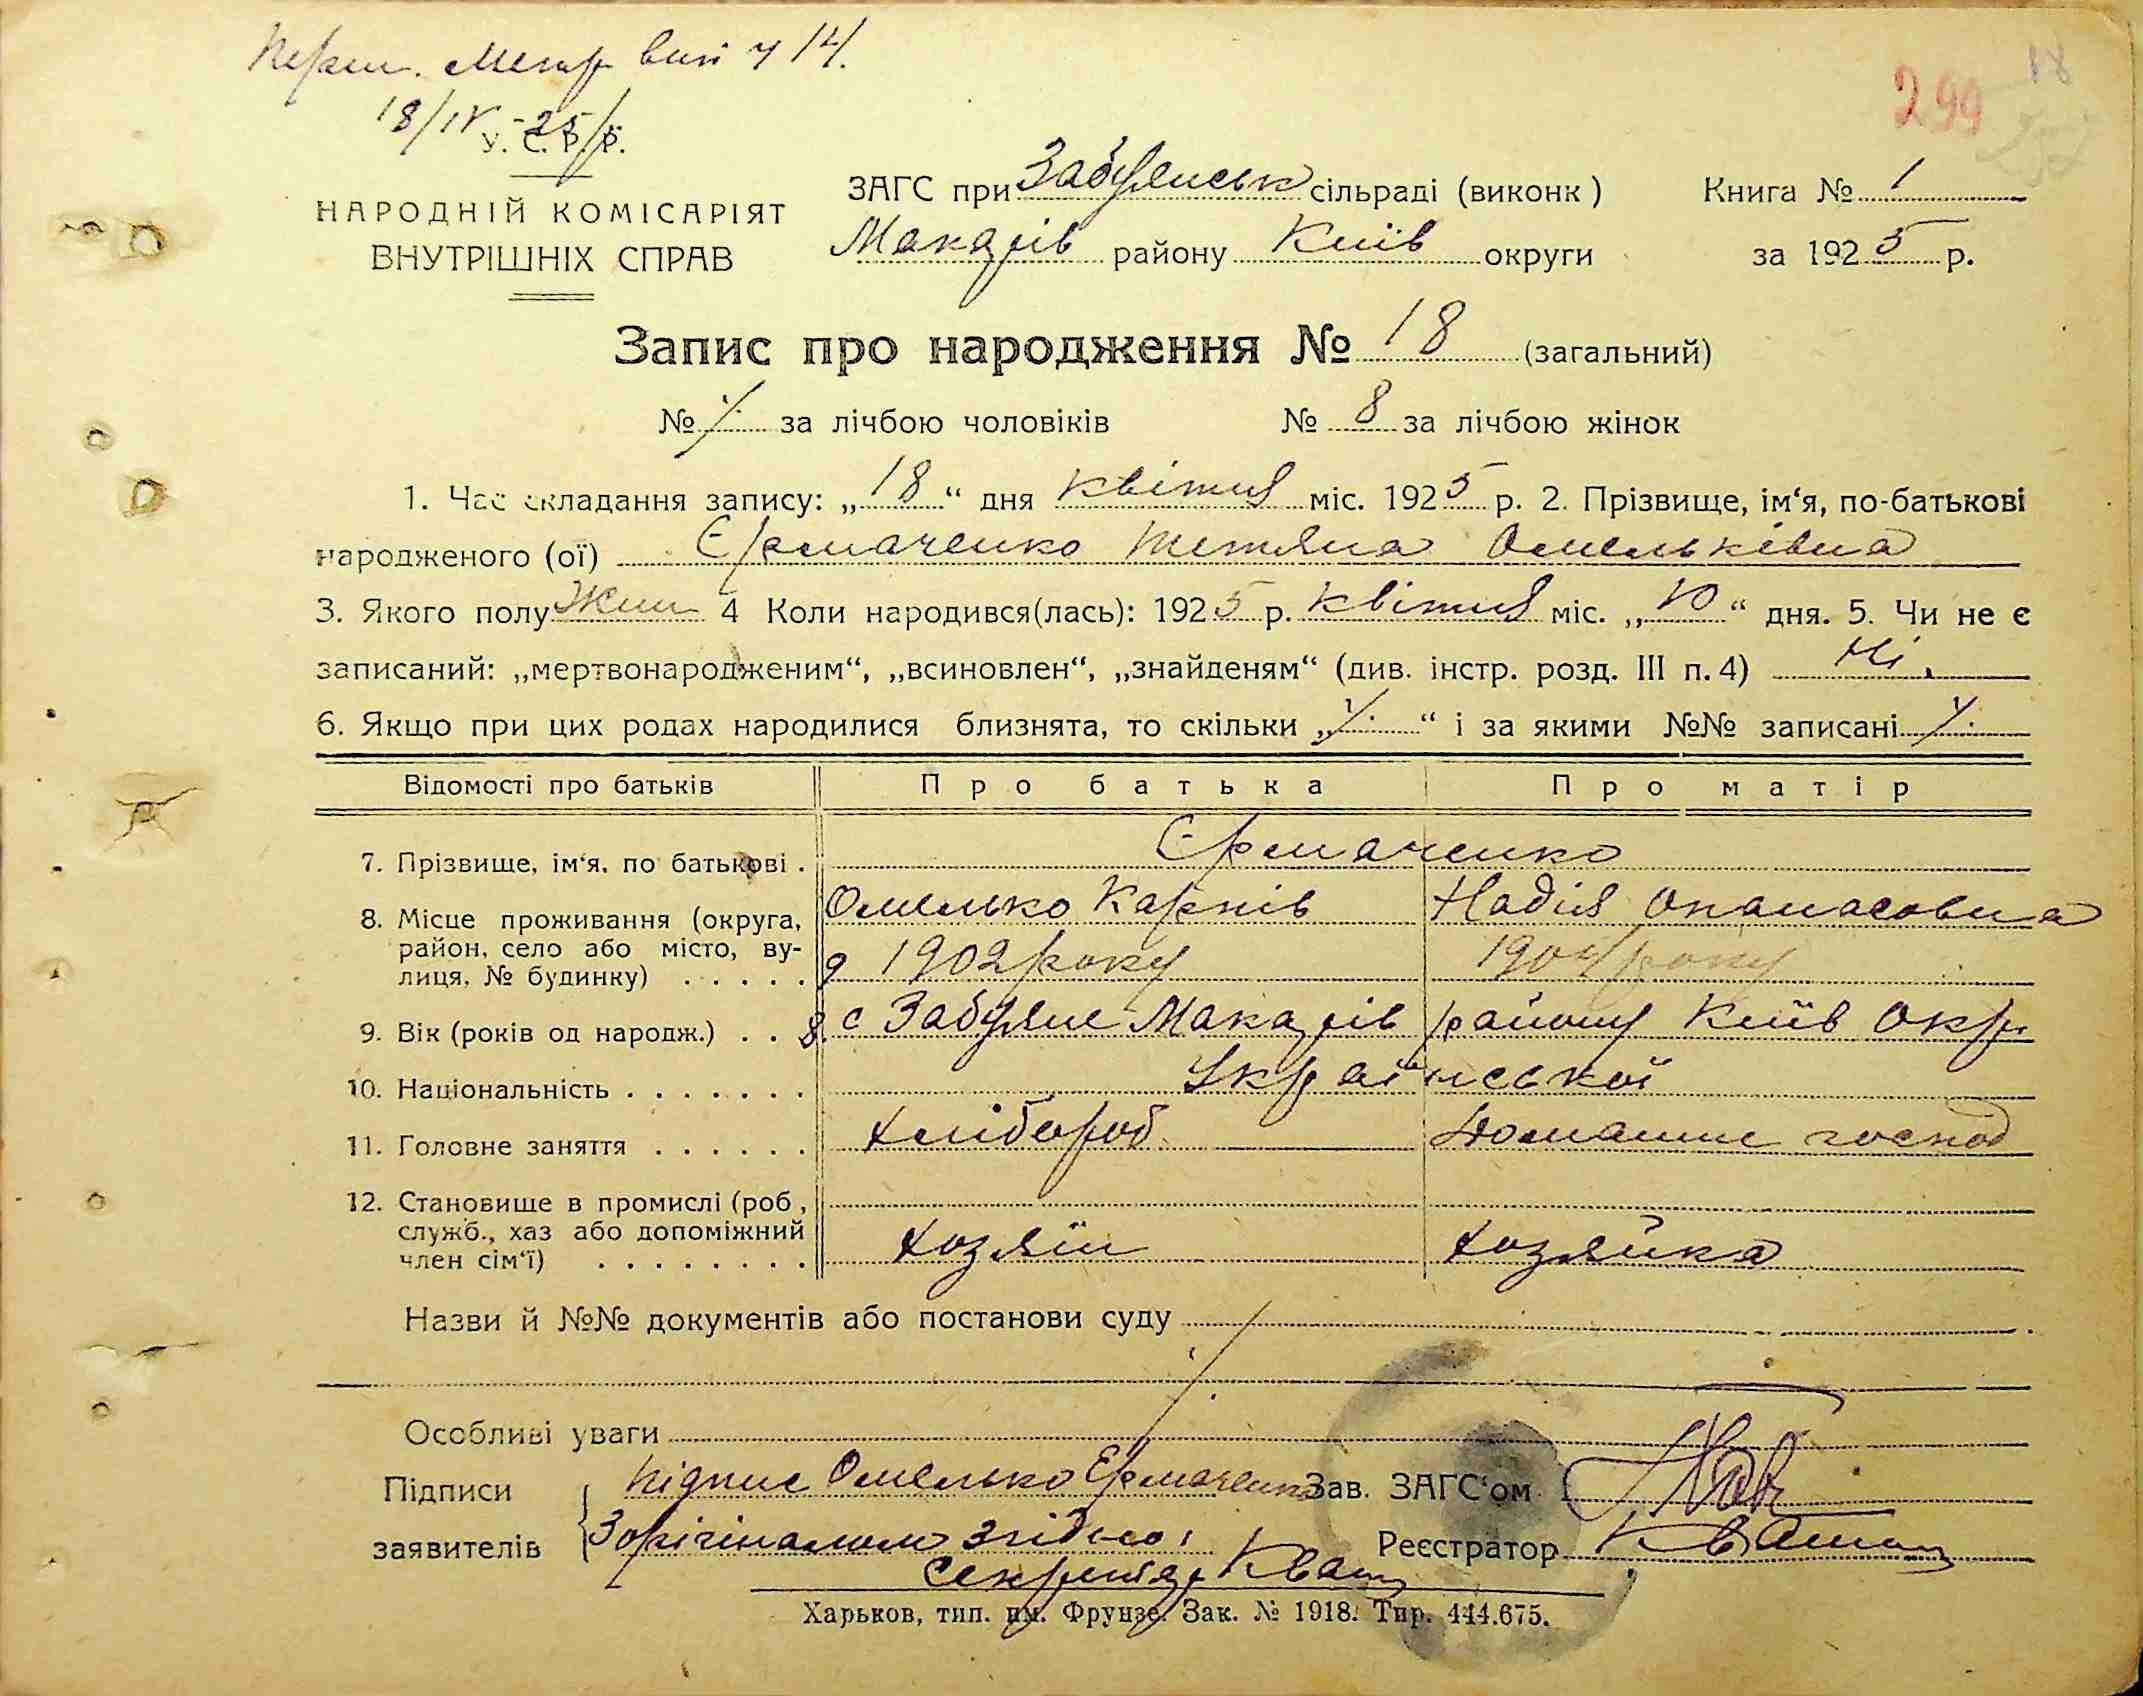 18/IV-25/р.
299
18
У. С. Р. Р.
НАРОДНІЙ КОМІСАРІЯТ
ВНУТРІШНІХ СПРАВ
ЗАГС при Забуянськ сільраді (виконк) Книга № 1
Макарів району Київ округи за 1925 р.
Запис про народження № 18 (загальний)
№ ./. за лічбою чоловіків № 8 за лічбою жінок
1. Час складання запису: „18“ дня квітня міс. 1925 р. 2. Прізвище, ім‘я, по-батькові
народженого (ої) Єрмаченко Тетяна Омельківна
3. Якого полу Жін 4 Коли народився(лась): 1925 р. квітня міс. „10“ дня. 5. Чи не є
записаний: „мертвонародженим“, „всиновлен“, „знайденям“ (див. інстр. розд. III п. 4) Ні.
6. Якщо при цих родах народилися близнята, то скільки „./.“ і за якими №№ записані ./.
Відомості про батьків Про батька Про матір
7. Прізвище, ім‘я, по батькові . Єрмаченко
8. Місце проживання (округа, Омелько Карпів Надія Опанасовна
район, село або місто, ву-
лиця, № будинку) . . . . . 9 1902 року 1904 року
9. Вік (років од народж.) . . 8. с Забуяне Макарів району Київ Окр
10. Національність . . . . . . . Української
11. Головне заняття . . . . . . Хлібороб Домашнє господ
12. Становище в промислі (роб,
служб., хаз або допоміжний Хозяїн Хозяйка
член сім‘ї) . . . . . . . .
Назви й №№ документів або постанови суду
Особливі уваги
Підписи підпис Омелько Єрмаченко Зав. ЗАГС‘ом
заявителів З орігіналом згідно: Реєстратор Кваш
Секретар Кваш
Харьков, тип. им. Фрунзе. Зак. № 1918. Тир. 444.675.